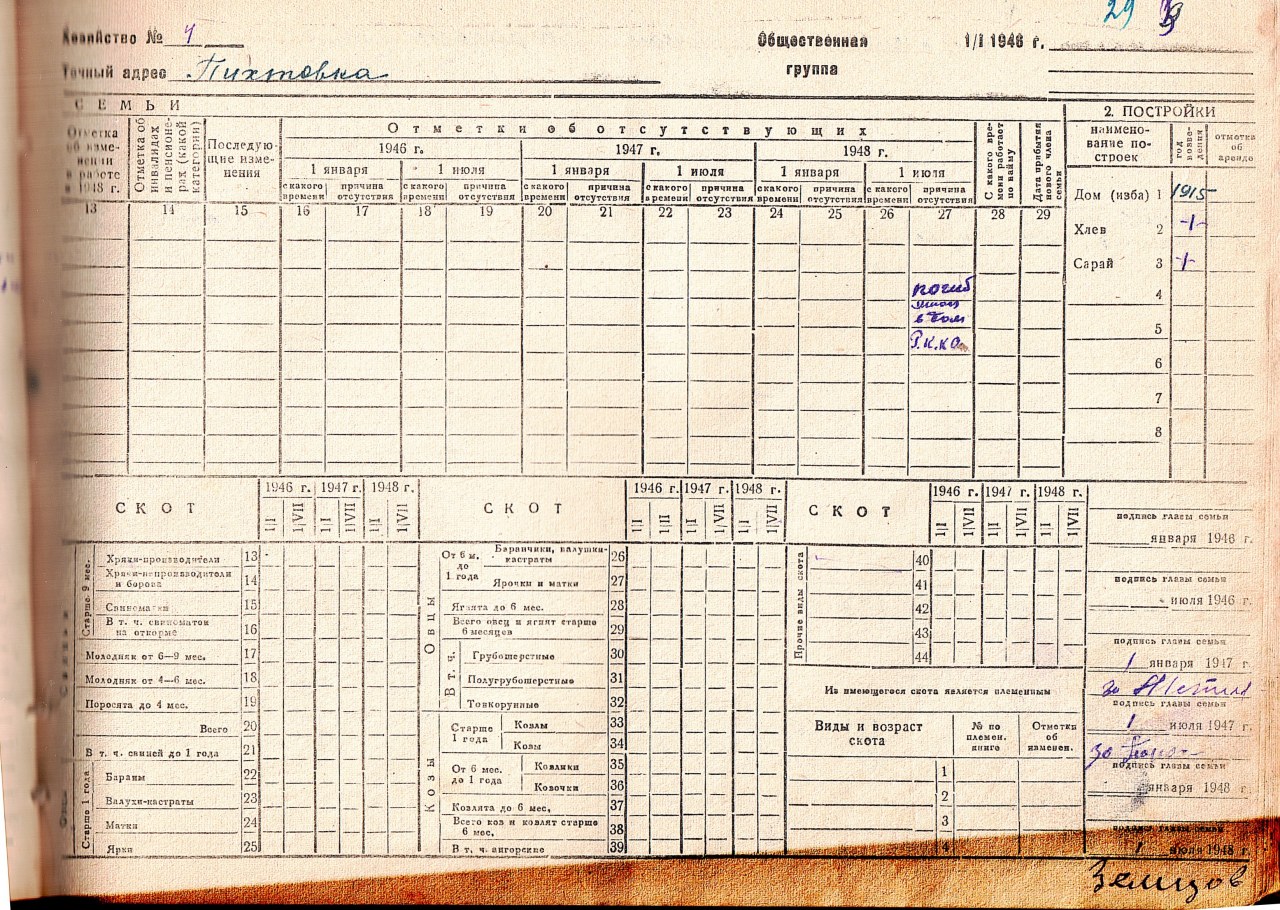 29
Хозяйство № 4
Общественная группа
1/I 1946 г.
Точный адрес Пихтовка
СЕМЬИ
Отметка об изменении в работе в 1948 г.
Отметка об инвалидах и пенсионерах (какой категории)
Последующие изменения
Отметки об отсутствующих
1946 г. 1947 г. 1948 г.
1 января 1 июля 1 января 1 июля 1 января 1 июля
с какого времени причина отсутствия с какого времени причина отсутствия с какого времени причина отсутствия с какого времени причина отсутствия с какого времени причина отсутствия с какого времени причина отсутствия
С какого времени работает по найму
Дата прибытия нового члена семьи
13 14 15 16 17 18 19 20 21 22 23 24 25 26 27 28 29
погиб
в
Р.К.КА
2. ПОСТРОЙКИ
наименование построек
год возведения
отметка об аренде
Дом (изба) 1 1915
Хлев 2
Сарай 3
4
5
6
7
8
СКОТ
1946 г. 1947 г. 1948 г.
1|I 1|VII 1|I 1|VII 1|I 1|VII
Старше 9 мес.
Хряки-производители 13
Хряки-непроизводители и борова 14
Свиноматки 15
В т. ч. свиноматок на откорме 16
Молодняк от 6—9 мес. 17
Молодняк от 4—6 мес. 18
Поросята до 4 мес. 19
Всего 20
В т. ч. свиней до 1 года 21
Старше 1 года
Бараны 22
Валухи-кастраты 23
Матки 24
Ярки 25
СКОТ
1946 г. 1947 г. 1948 г.
1|I 1|II 1|I 1|VII 1|I 1|VII
Овцы
От 6 м. до 1 года
Баранчики, валушки-кастраты 26
Ярочки и матки 27
Ягнята до 6 мес. 28
Всего овец и ягнят старше 6 месяцев 29
В т. ч.
Грубошерстные 30
Полугрубошерстные 31
Тонкорунные 32
Козы
Старше 1 года
Козлы 33
Козы 34
От 6 мес. до 1 года
Козлики 35
Козочки 36
Козлята до 6 мес. 37
Всего коз и козлят старше 6 мес. 38
В т. ч. ангорские 39
СКОТ
1946 г. 1947 г. 1948 г.
1|I 1|VII 1|I 1|VII 1|I 1|VII
Прочие виды скота
40
41
42
43
44
Из имеющегося скота является племенным
Виды и возраст скота
№ по племен. книге
Отметки об изменен.
1
2
3
4
подпись главы семьи
января 1946 г.
подпись главы семьи
июля 1946 г.
подпись главы семьи
1 января 1947 г.
за
подпись главы семьи
1 июля 1947 г.
за
подпись главы семьи
января 1948 г.
подпись главы семьи
1 июля 1948 г.